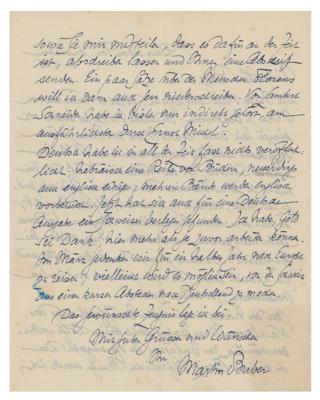 sowie Sie mir mitteilen, dass es dafür an der Zeit
ist, abschreiben lassen und Ihnen eine Abschrift
senden. Ein paar Sätze über den Menschen Florens
will ich dann auch niederschreiben. Von Lambert
Schneider habe ich bisher nur indirekt gehört, am
ausführlichsten durch Ernst Michel.
Deutsch habe ich in all der Zeit fast nichts veröffent-
licht, hebräisch eine Reihe von Büchern, neuerdings
auch englisch einige; mehrere Bände werden englisch
vorbereitet. Jetzt hat sich auch für eine deutsche
Ausgabe ein Schweizer Verleger gefunden. Ich habe, Gott
sei Dank, hier mehr als je zuvor arbeiten können.
Im März gedenken wir für ein halbes Jahr nach Europa
zu reisen; vielleicht wird es möglich sein, von der Schweiz
aus einen kurzen Abstecher nach Deutschland zu machen.
Das gewünschte Zeugnis liegt bei.
Mit guten Grüssen und Wünschen
Ihr
Martin Buber